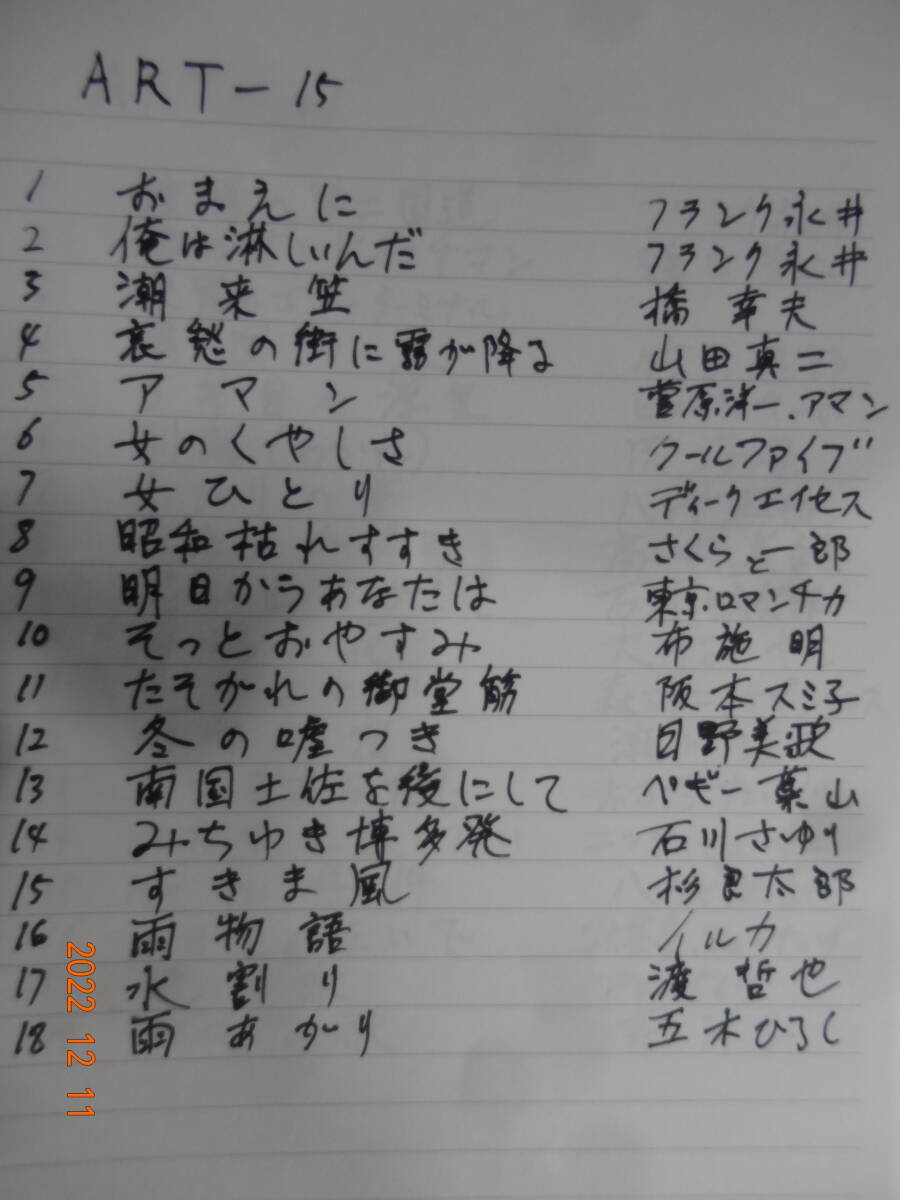 ART-15
1 おまえに フランク永井
2 俺は淋しいんだ フランク永井
3 潮来笠 橋幸夫
4 哀愁の街に霧が降る 山田真二
5 アマン 菅原洋一、アマン
6 女のくやしさ クールファイブ
7 女ひとり ディークエイセス
8 昭和枯れすすき さくらと一郎
9 明日からあなたは 東京・ロマンチカ
10 そっとおやすみ 布施明
11 たそがれの御堂筋 阪本スミ子
12 冬の嘘つき 日野美歌
13 南国土佐を後にして ペギー葉山
14 みちゆき博多発 石川さゆり
15 すきま風 杉良太郎
16 雨物語 イルカ
17 水割り 渡哲也
18 雨あがり 五木ひろし
2022 12 11